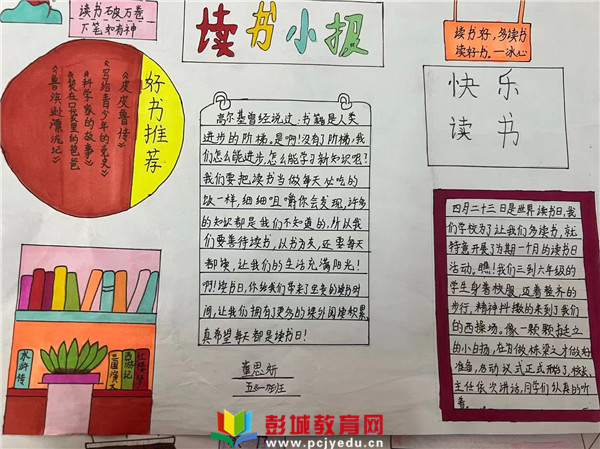 读书破万卷
下笔如有神
读书小报
读书好,多读书
读好书。—冰心
好书推荐
《皮皮鲁传》
《写给青少年的党史》
《科学家的故事》
《装在口袋里的爸爸》
《鲁滨逊漂流记》
高尔基曾经说过:书籍是人类
进步的阶梯,是啊!没有了阶梯,我
们怎么能进步,怎么能学习新知识呢?
我们要把读书当做每天必吃的
饭一样,细细咀嚼你会发现,许多
的知识都是我们不知道的,所以我
们要善待读书,以书为友,还要每天
都读,让我们的生活充满阳光!
啊!读书日,你给我们带来了宝贵的读书时
间,让我们拥有了更多的课外阅读积累,
真希望每天都是读书日!
董思妍
五(一)班
快乐
读书
四月二十三日是世界读书日,我
们学校为了让我们多读书,就
特意开展了为期一个月的读书日
活动。瞧!我们三到六年级的
学生身着校服,迈着整齐的
步行,精神抖擞的来到了我们
的西操场。像一颗颗挺立
的小白杨,在为做栋梁之才做好
准备,活动仪式正式开始了,校长、
主任依次讲话,同学们认真的听
着
水浒传
三国演义
西游记
红楼梦
彭城教育网
www.pcjyedu.cn